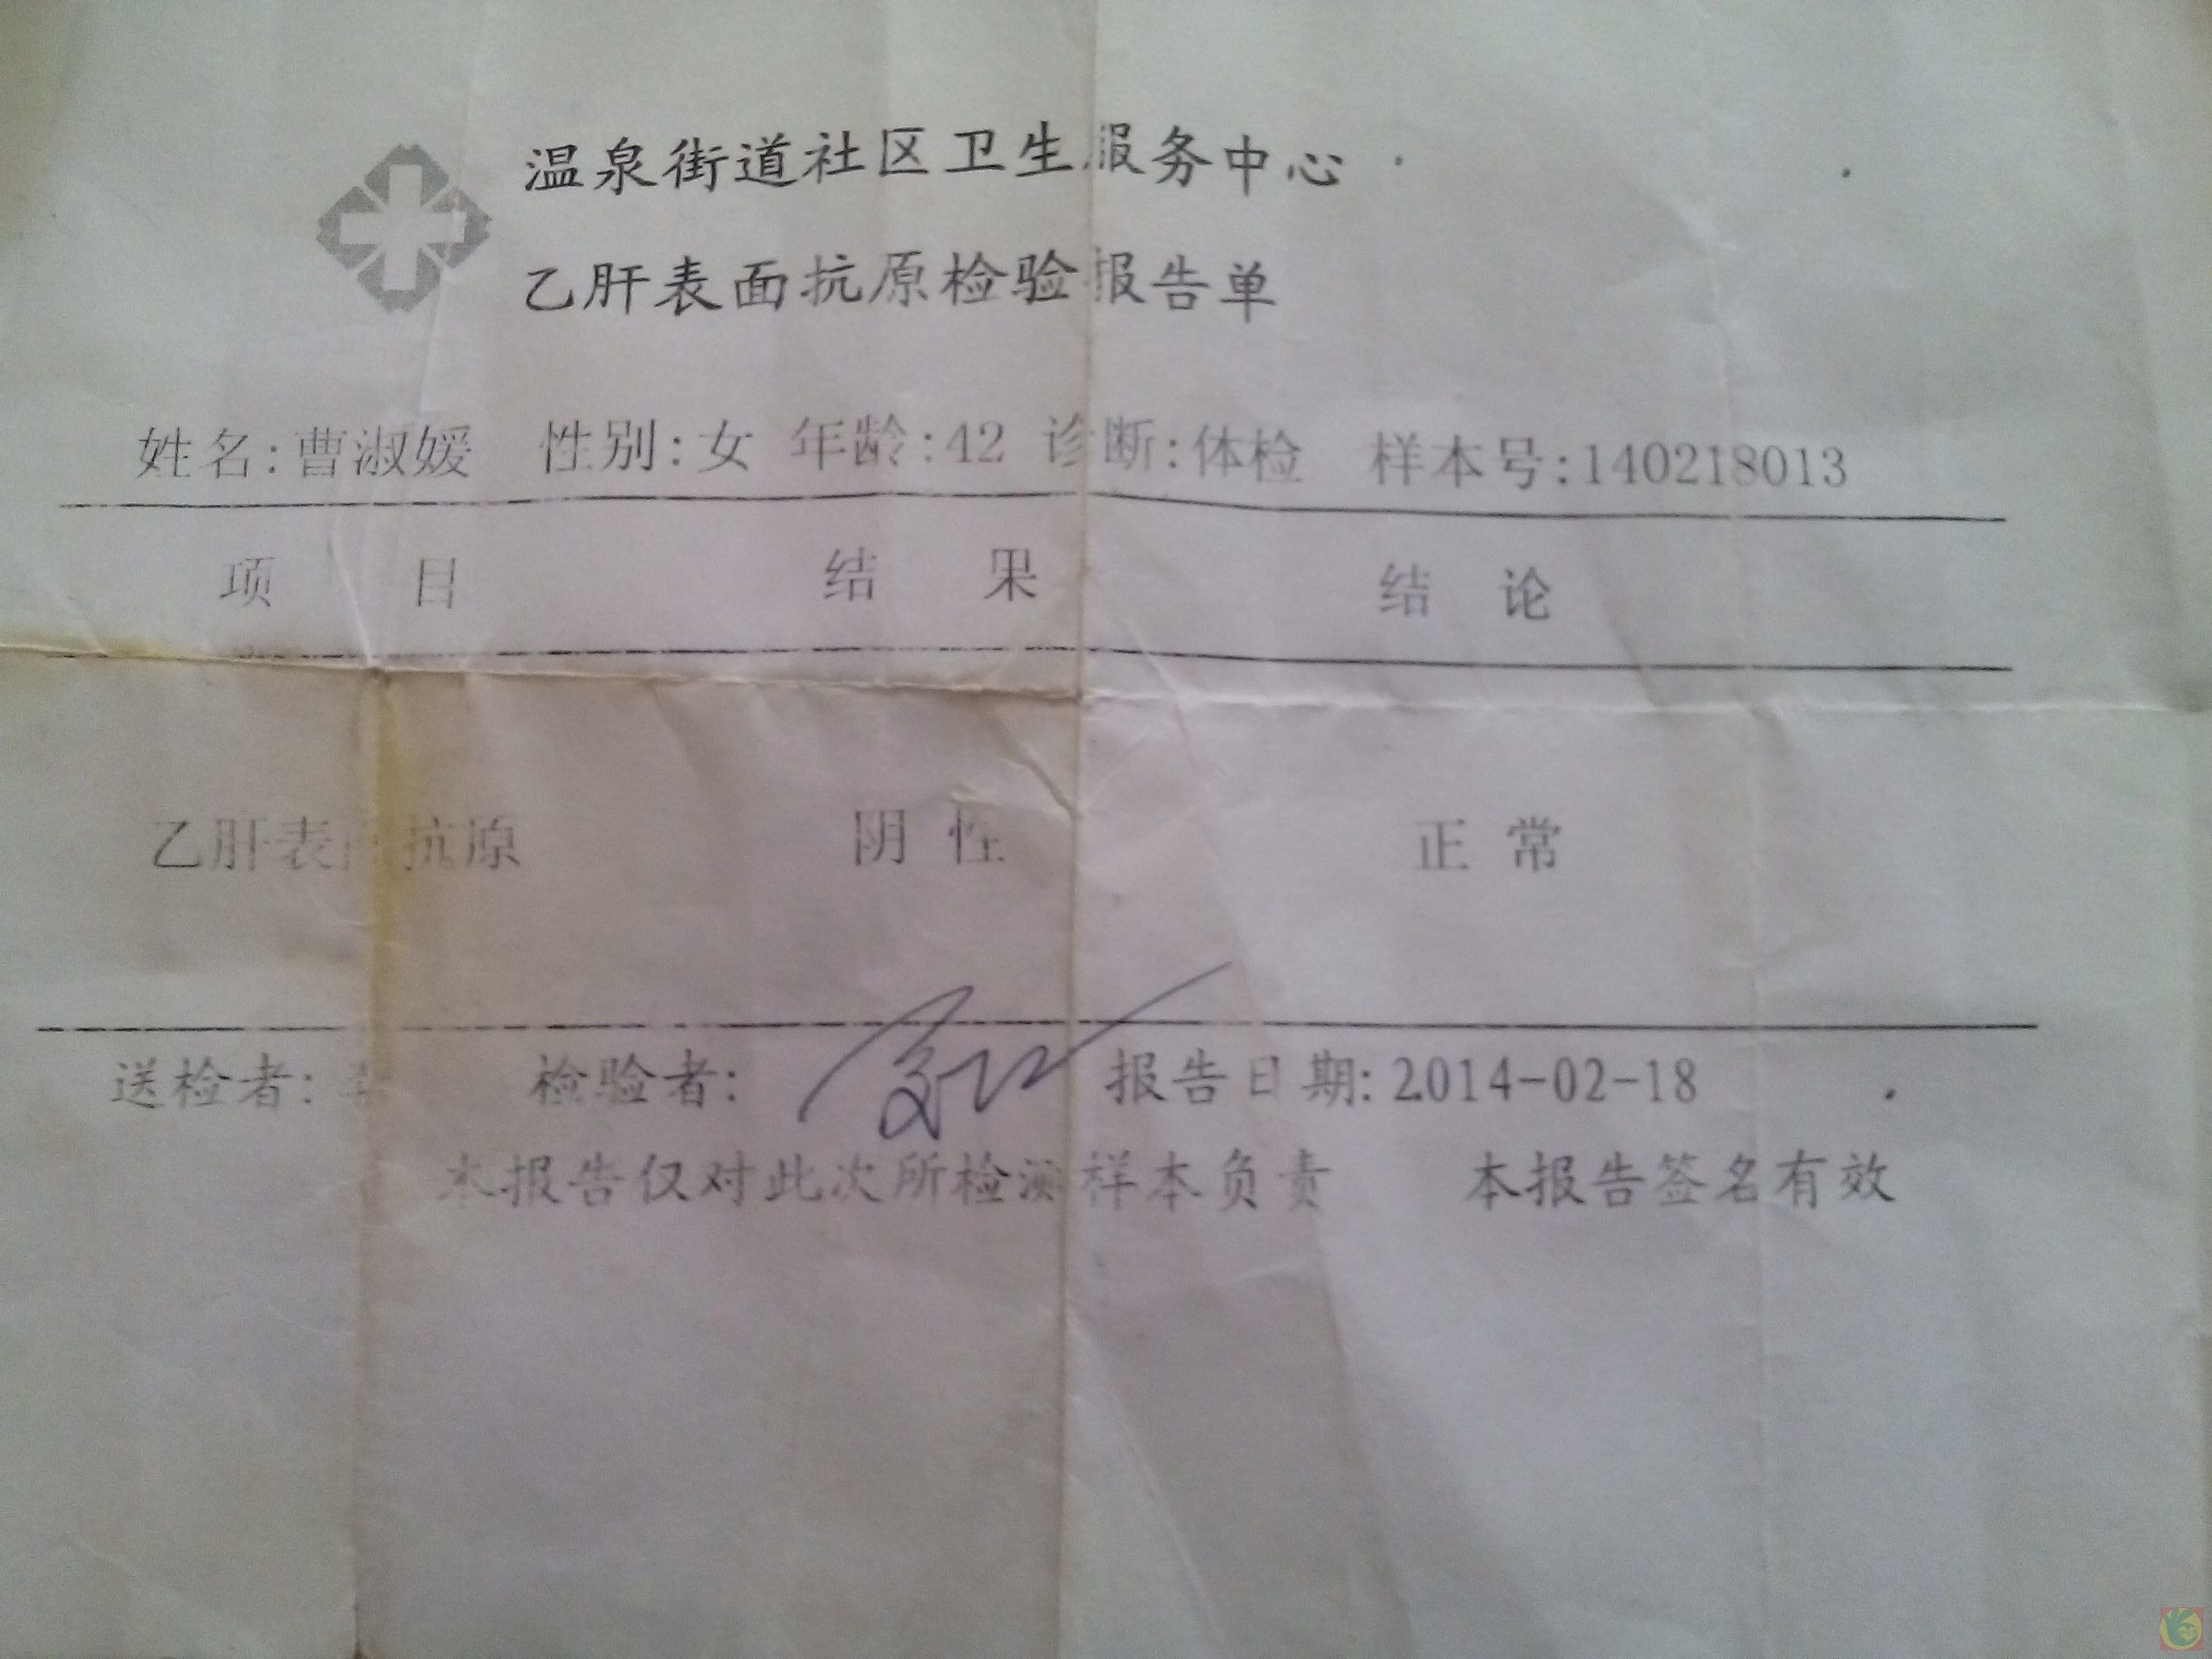 温泉街道社区卫生服务中心
乙肝表面抗原检验报告单
姓名:曹淑媛 性别:女 年龄:42 诊断:体检 样本号:140218013
项 目 结 果 结 论
乙肝表面抗原 阴性 正常
送检者: 检验者: 报告日期:2014-02-18
本报告仅对此次所检测样本负责 本报告签名有效